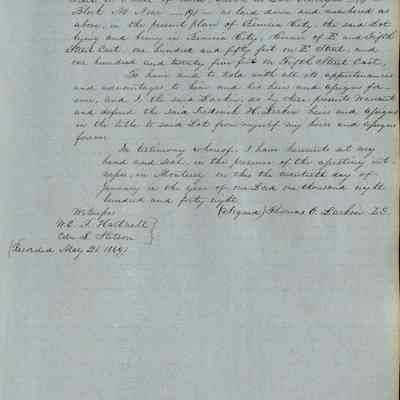 Block No Nine — 19 — as laid down and numbered as
above, in the present plan of Benicia City, the said Lot
lying and being in Benicia City, Corner of E and Fifth
Street East, one hundred and fifty feet on E Street, and
one hundred and twenty five feet on Fifth Street East,
To have and to hold with all its appurtenances
and advantages to him and his heirs and assigns for-
ever, and I the said Larkin, do by these presents Warrant
and defend the said Frederick H. Larkin heirs and assigns
in the title to said Lot from myself my heirs and assigns
forever
In testimony whereof, I have hereunto set my
hand and seal, in the presence of the
in Monterey on this the day of
January in the year of our Lord one thousand eight
hundred and forty eight
Witnesses (Signed) Thomas O. Larkin L.S.
W.E. P. Hartnell }
Edw. L. Stetson }
(Recorded May 21